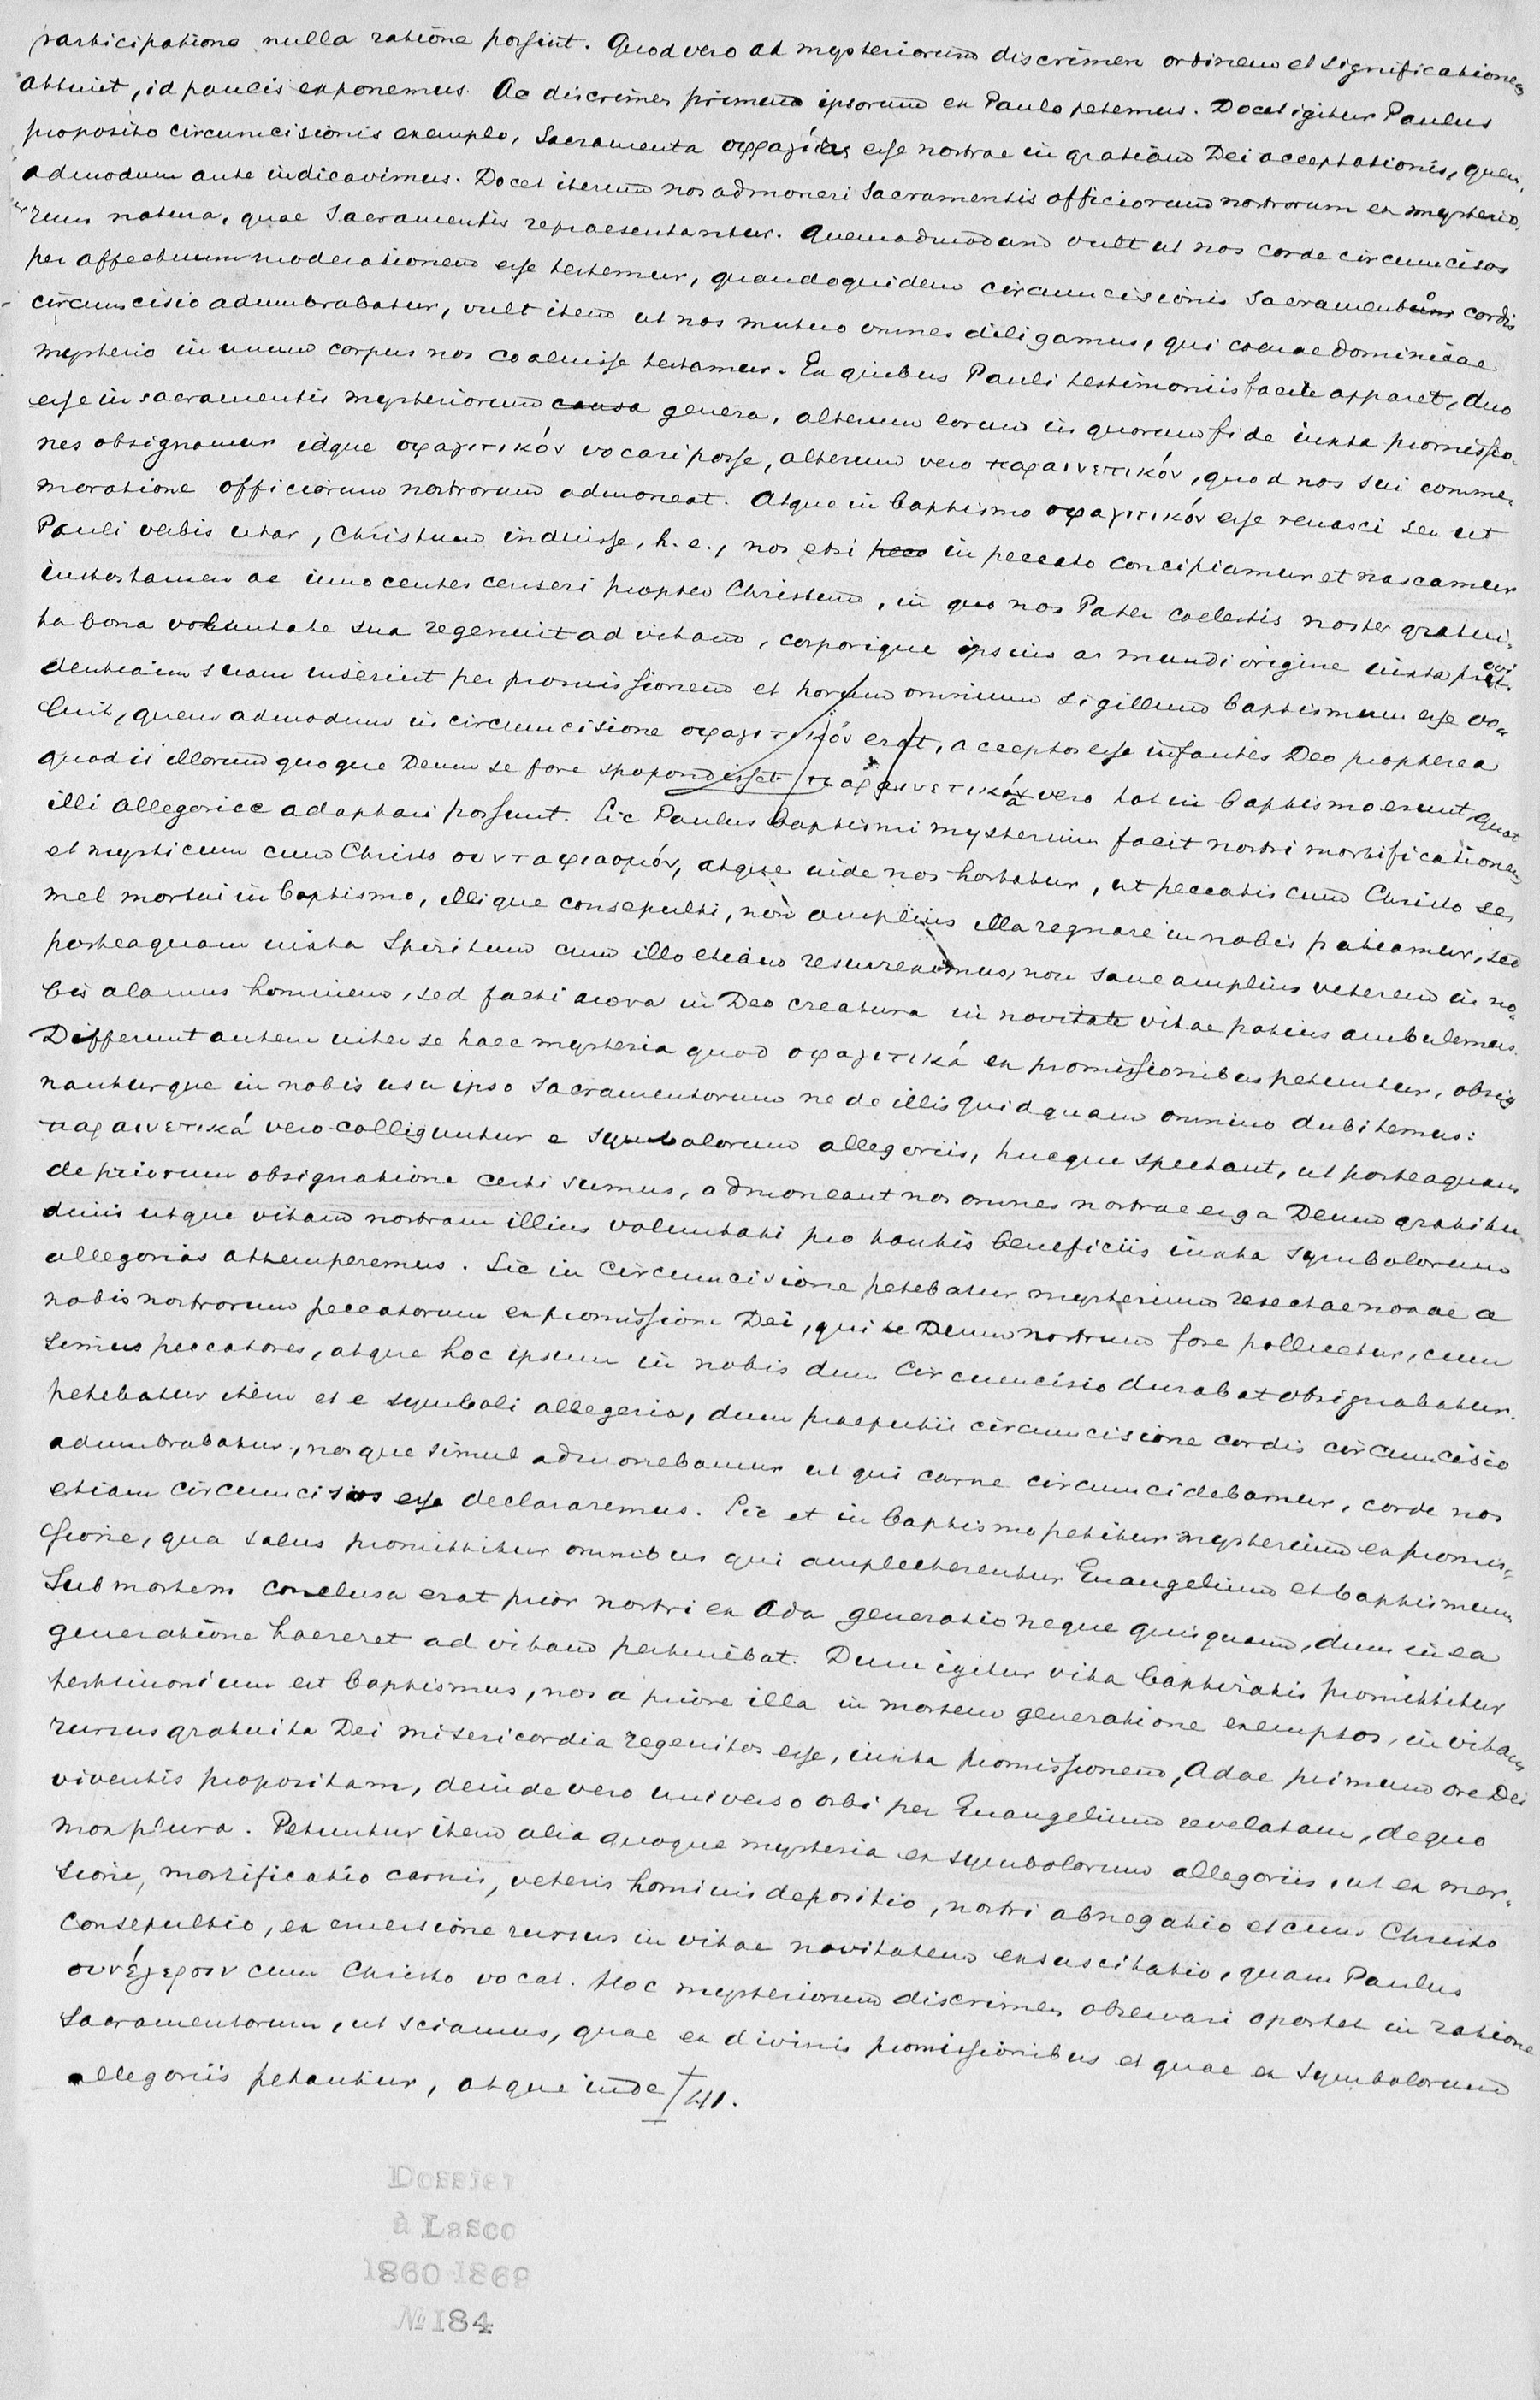 participatione nulla ratione possint. Quod vero ad mysteriorum discrimen ordinem et significationem
attinet, id paucis exponemus. Ac discrimen primum ipsorum ex Paulo petemus. Docet igitur Paulus
proposito circumcisionis exemplo, Sacramenta σφραγίδας esse nostrae in gratiam Dei acceptationis, quem,
admodum ante indicavimus. Docet iterum nos admoneri Sacramentis officiorum nostrorum ex mysterio,
rum natura, quae Sacramentis repraesentantur. Quemadmodum vult ut nos corde circumcisos
per affectuum moderationem esse testemur, quandoquidem circumcisionis Sacramento cordis
circumcisio adumbrabatur, vult item ut nos mutuo omnes diligamus, qui coenae dominicae
mysterio in unum corpus nos coaluisse testamur. Ex quibus Pauli testimoniis facile apparet, duo
esse in sacramentis mysteriorum causa genera, alterum eorum in quorum fide iuxta promissio-
nes obsignamur idque σφαγιτικόν vocari posse, alterum vero παραινετικόν, quod nos sui comme-
moratione officiorum nostrorum admoneat. Atque in baptismo σφαγιτικόν esse renasci seu ut
Pauli verbis utar, Christum induisse, h. e., nos etsi pecc in peccato concipiamur et nascamur
iustos tamen ac innocentes censeri propter Christum, in quo nos Pater coelestis noster gratui-
ta bona voluntate sua regenuit ad vitam, corporique ipsius ac mundi origine iuxta provi-
dentiam suam inseruit per promissionem et horum omnium sigillum baptismum esse vo-
luit, quem admodum in circumcisione σφαγιτικόν erat, acceptos esse infantes Deo propterea
quod is illorum quoque Deum se fore spopondisset παραινετικά vero tot in baptismo erunt, quot
illi allegorice adaptari possunt. Sic Paulus baptismi mysterium facit nostri mortificationem
et mysticum cum Christo συνταφιασμόν, atque inde nos hortatur, ut peccatis cum Christo se-
mel mortui in baptismo, illique consepulti, non amplius illa regnare in nobis patiamur, sed
posteaquam iuxta Spiritum cum illo etiam resurreximus, non sane amplius veterem in no-
bis alamus hominem, sed facti nova in Deo creatura in novitate vitae potius ambulemus.
Differunt autem inter se haec mysteria quod σφαγιτικά ex promissionibus petuntur, obsig
nanturque in nobis usu ipso Sacramentorum ne de illis quidquam omnino dubitemus:
παραινετικά vero colliguntur e symbolorum allegoriis, hucque spectant, ut posteaquam
de priorum obsignatione certi sumus, admoneant nos omnes nostrae erga Deum gratitu-
dinis utque vitam nostram illius voluntati pro tantis beneficiis iuxta symbolorum
allegorias attemperemus. Sic in Circumcisione petebatur mysterium resectae noxae a
nobis nostrorum peccatorum ex promissione Dei, qui se Deum nostrum fore pollicetur, cum
simus peccatores, atque hoc ipsum in nobis dum Circumcisio durabat obsignabatur.
petebatur item et e symboli allegoria, dum praeputii circumcisione cordis circumcisio
adumbrabatur, nosque simul admonebamur ut qui carne circumcidebamur, corde nos
etiam circumcisos esse declararemus. Sic et in baptismo petitur mysterium ex promis-
sione, qua salus promittitur omnibus qui amplecterentur Euangelium et baptismum
Sub mortem conclusa erat prior nostri ex Ada generatio neque quisquam, dum in ea
generatione haereret ad vitam pertinebat. Dum igitur vita baptizatis promittitur
testimonium est baptismus, nos a priore illa in mortem generatione exemptos, in vitam
rursus gratuita Dei misericordia regenitos esse, iuxta promissionem, Adae primum ore Dei
viventis propositam, deinde vero universo orbi per Euangelium revelatam, de quo
mox plura. Petuntur item alia quoque mysteria ex symbolorum allegoriis, ut ex mer-
sione, mortificatio carnis, veteris hominis depositio, nostri abnegatio et cum Christo
consepultio, ex emersione rursus in vitae novitatem exsuscitatio, quam Paulus
συνέγερσιν cum Christo vocat. Hoc mysteriorum discrimen observari oportet in ratione
Sacramentorum, ut sciamus, quae ex divinis promissionibus et quae ex symbolorum
allegoriis petantur, atque inde 41.
Dossier
à Lasco
1860-1869
№ 184